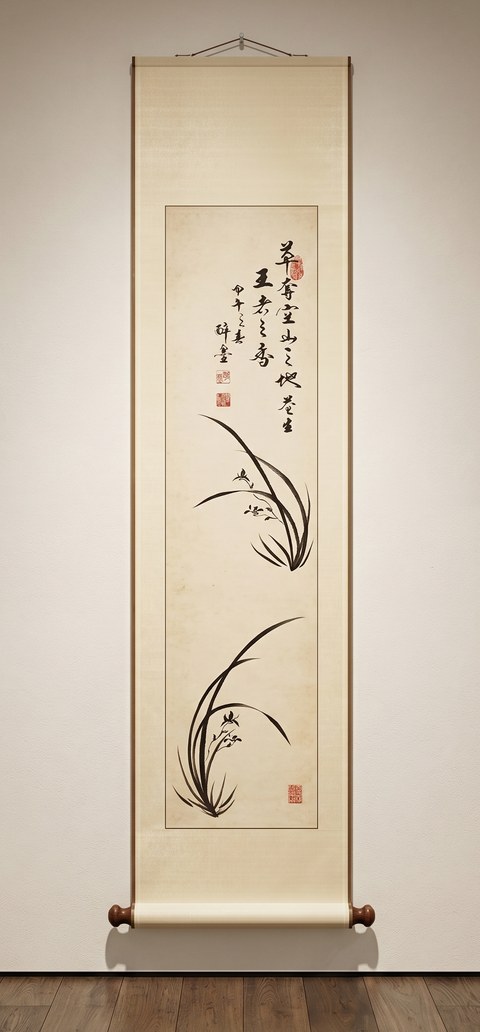 草奪空山之地生
王者之香
甲午之春
醉